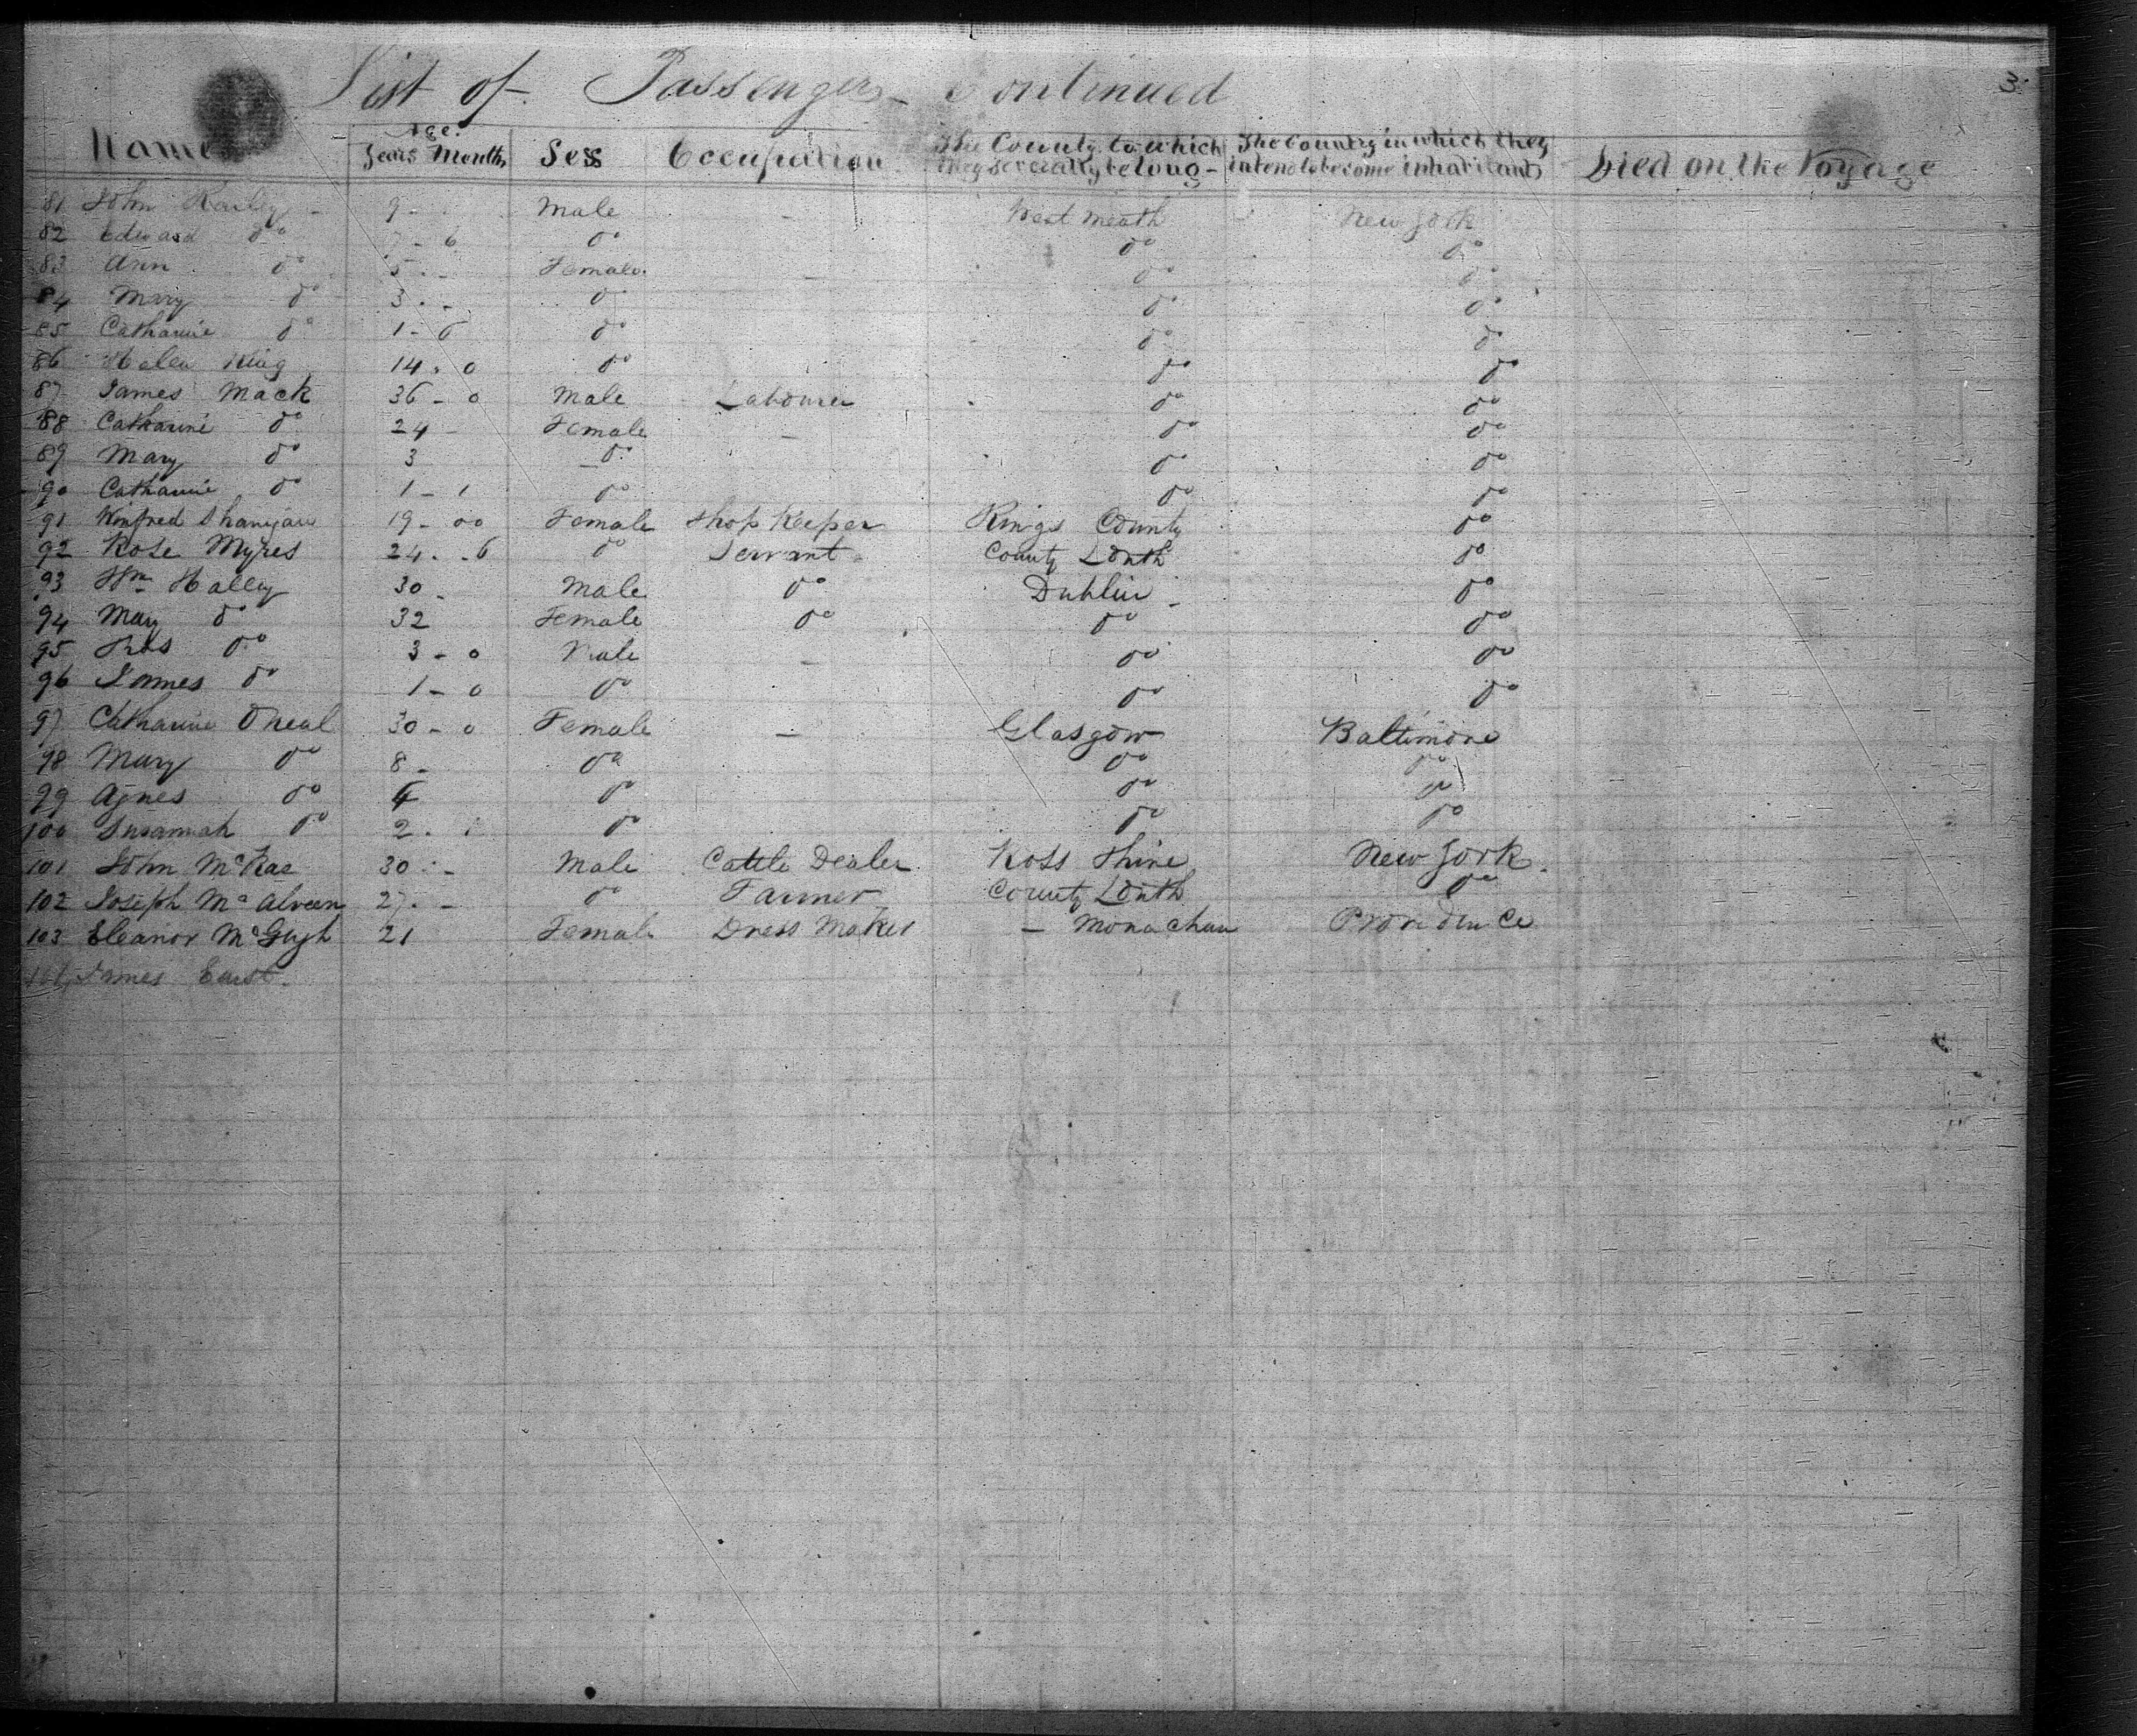 3
List of Passengers Continued
Name Age. Years Months Sess Occupation The County to which they severally belong - The Country in which they intend to become inhabitants Died on the Voyage
81 John 9 - Male - West meath New York
82 Edward do 7 - 6 do do do
83 Ann do 5 - Female - do do
84 Mary do 3 - do do do
85 Catharine do 1 - 6 do do do
86 Helen King 14 - 0 do do do
87 James Mack 36 - 0 Male Labourer do do
88 Catharine do 24 - Female - do do
89 Mary do 3 - do do do
90 Catharine do 1 - 1 do do do
91 Winfred 19 - 00 Female Shop Keeper Kings County do
92 Rose Myres 24 - 6 do Servant County Louth do
93 Wm Halley 30 - Male do Dublin - do
94 Mary do 32 Female do do do
95 Thos do 3 - 0 Male - do do
96 James do 1 - 0 do - do do
97 Catharine Oneal 30 - 0 Female - Glasgow Baltimore
98 Mary do 8 - do do do
99 Agnes do do do do
100 Susannah do 2 - do do do
101 John McRae 30 - Male Cattle Dealer Ross Shire New York
102 Joseph Mc Alveen 27 - do Farmer County Louth do
103 Eleanor McGugh 21 Female Dress Maker - Monachan Providence
104 James East